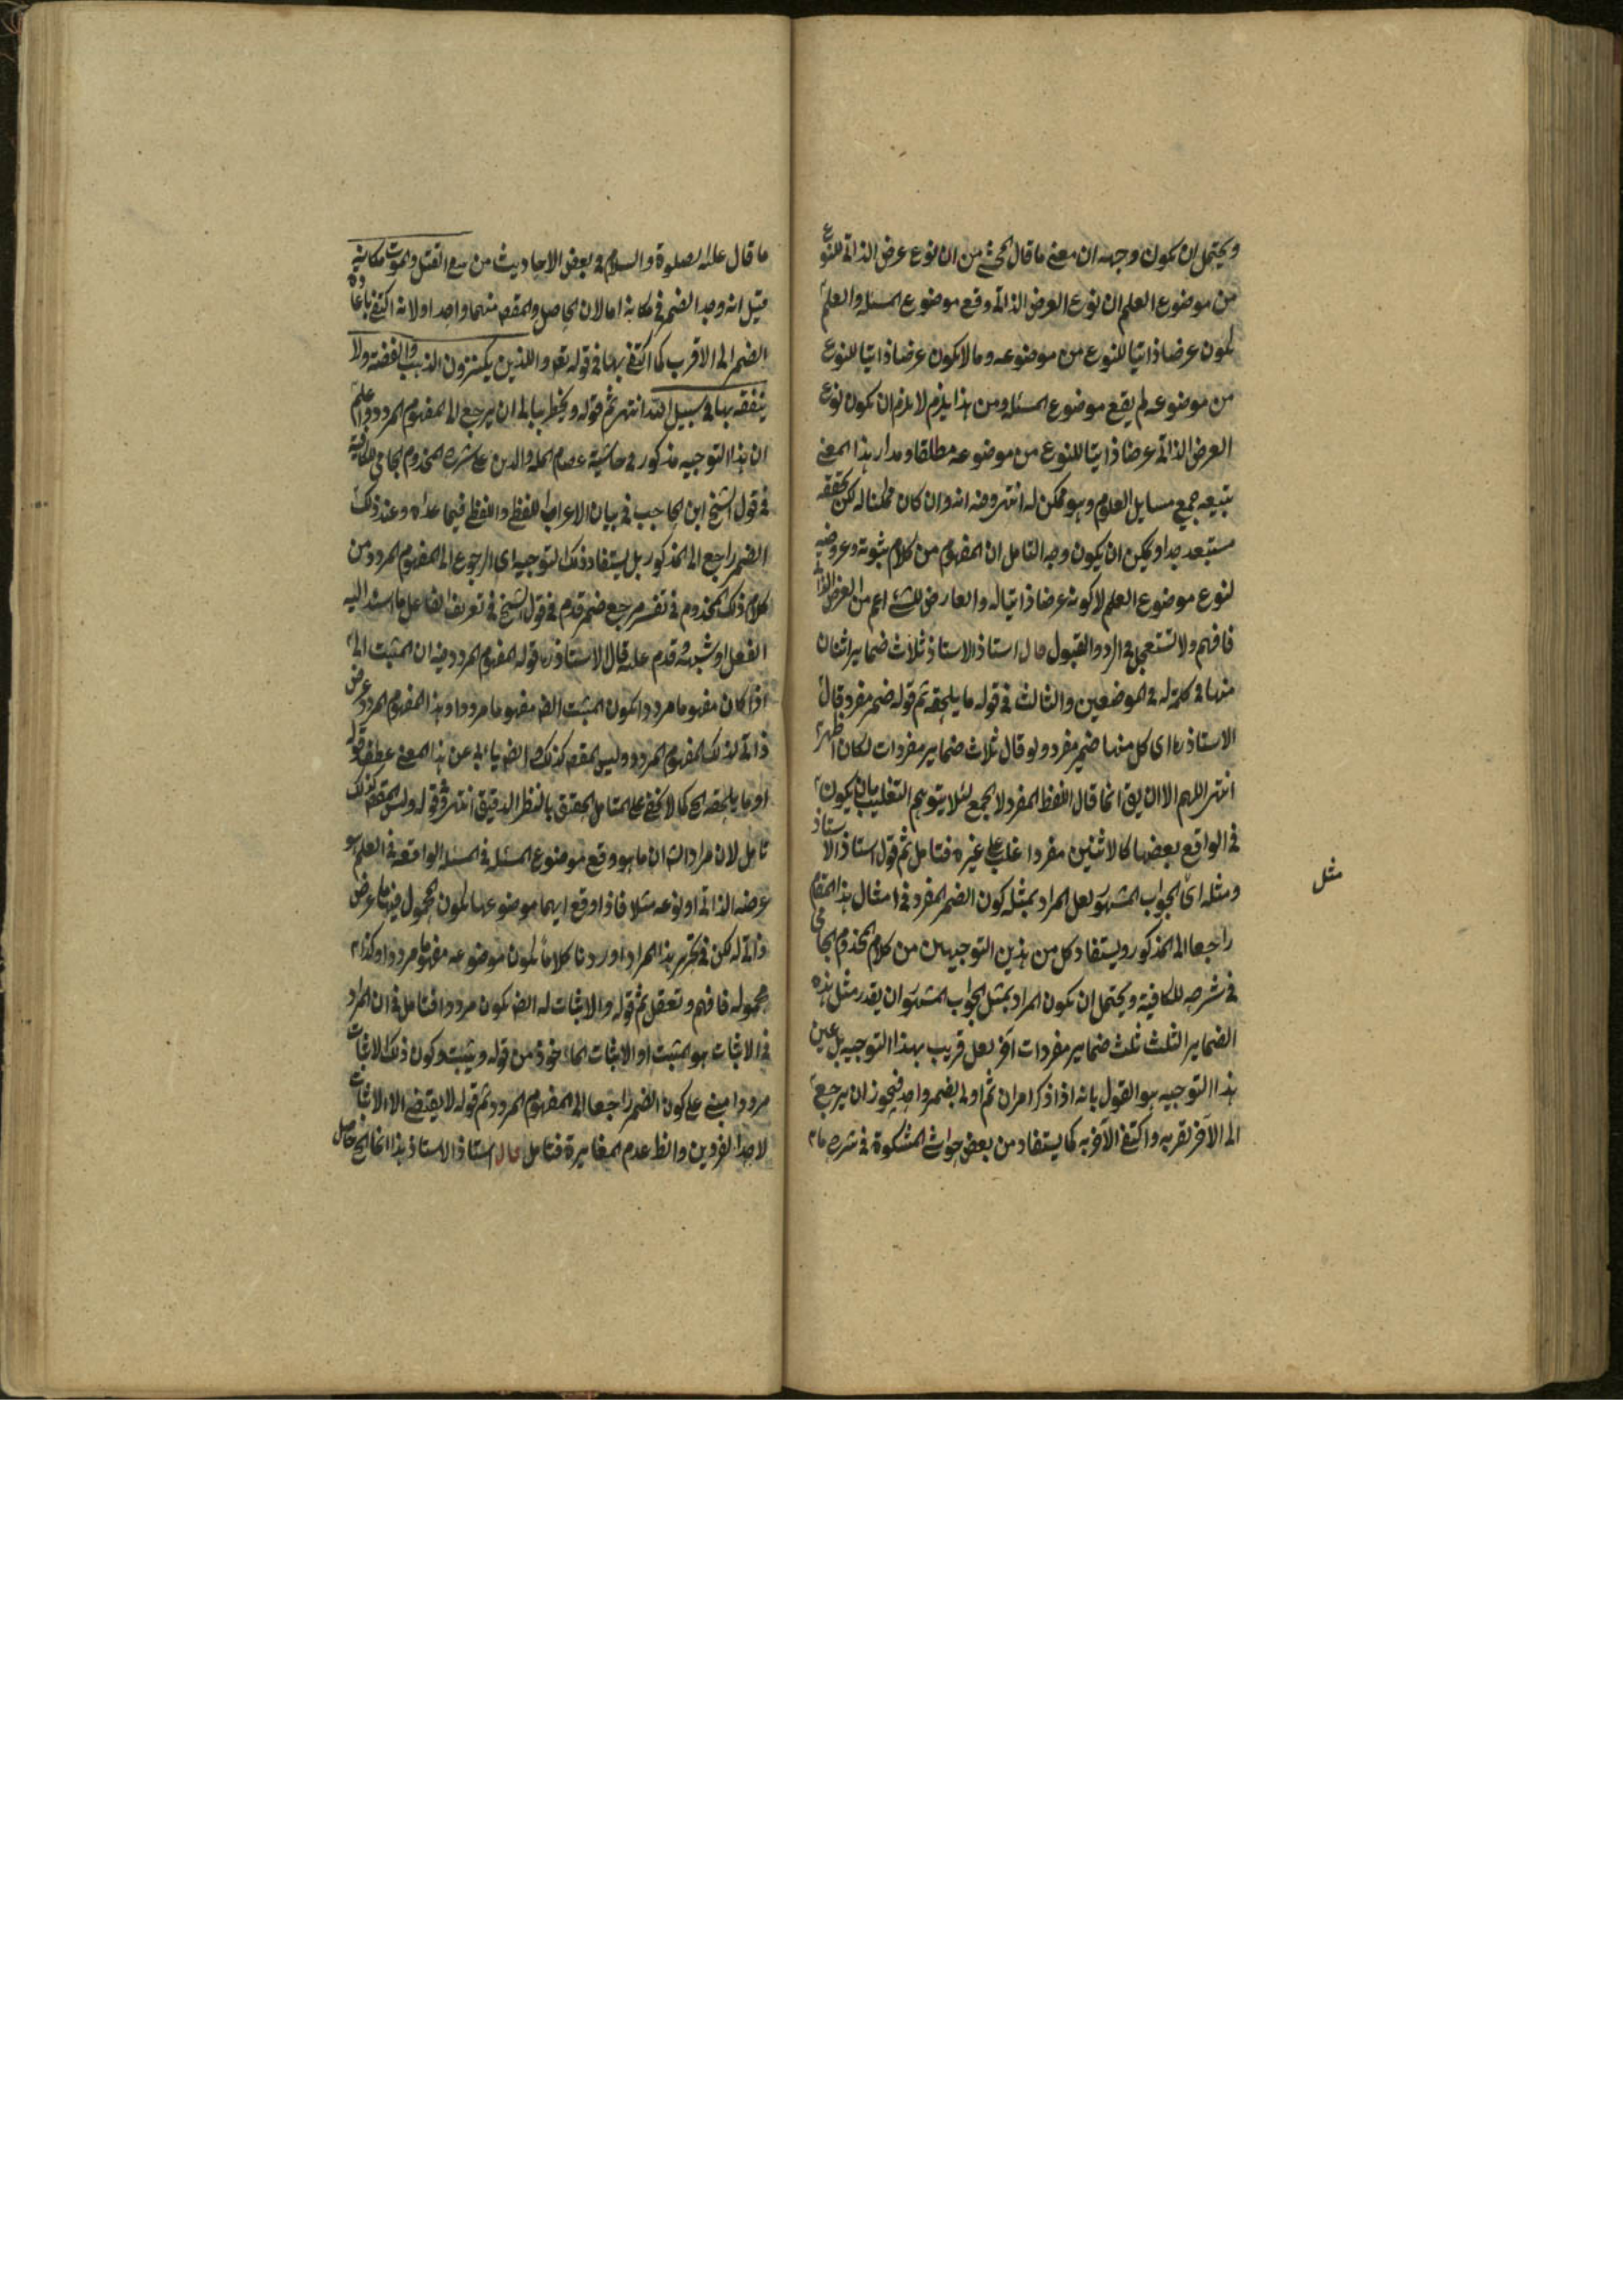 ويحتمل ان يكون وجهه ان معنى ما قال المحشي من ان نوع عرض الذاتي للنوع
من موضوع العلم ان نوع العرض الذاتي وقع موضوع المسئلة والعلم
لكون عرضا ذاتيا للنوع من موضوعه وما لا يكون عرضا ذاتيا للنوع
من موضوعه لم يقع موضوع المسئلة ومن هذا يلزم لا يلزم ان يكون نوع
العرض الذاتي عرضا ذاتيا للنوع من موضوعه مطلقا ومدار هذا المعنى
بتبيعه جميع مسايل العلوم وهو ممكن له انتهى وفيه انه وان كان ممكنا له لكن تحققه
مستبعد جدا ويمكن ان يكون وجه التامل ان المفهوم من كلامه ثبوته وعروضه
لنوع موضوع العلم لا كونه عرضا ذاتيا له والعارض للشئ اعم من العرض الذاتي
فافهم ولا تستعجل في الرد والقبول قال استاذ الاستاذ ثلاث ضماير اثنان
منها في كلمة له في الموضعين والثالث في قوله ما يلحقه ثم قوله ضمير مفرد قال
الاستاذ ره اى كل منها ضمير مفرد ولو قال ثلاث ضماير مفردات لكان اظهر
انتهى اللهم الا ان يق انما قال اللفظ المفرد لا الجمع لئلا يتوهم التغليب بان يكون
في الواقع بعضها كالاثنين مفردا غلب على غيره فتامل ثم قول استاذ الاستاذ
ومثله اى الجواب المشهور لعل المراد بمثله كون الضمير المفرد في امثال هذا المقام
راجعا الى المذكور ويستفاد كل من هذين التوجيهين من كلام المخدوم الجامي
في شرحه للكافية ويحتمل ان يكون المراد بمثل الجواب المشهور ان يقدر مثل هذه
الضماير الثلث ثلث ضماير مفردات اخر لعل قريب بهذا التوجيه بل عين
هذا التوجيه هو القول بانه اذا ذكر امران ثم اولى بضمير واحد فيجوز ان يرجع
الى الآخر لقربه واكتفى الآخر به كما يستفاد من بعض حواشي المشكوة في شرح
مثل
ما قال عليه الصلوة والسلام في بعض الاحاديث من القتل والموت مكانه
قيل انه وحد الضمير في مكانه اما لان الحاصل والمقصود منهما واحد اولانه اكتفى باعادة
الضمير الى الاقرب كما اكتفى بها في قوله تعه والذين يكنزون الذهب والفضة ولا
ينفقونها في سبيل الله انتهى ثم قوله ويخطر ببالي ان يرجع الى المفهوم المردد واعلم
ان هذا التوجيه مذكور في حاشية عصام الملة والدين على شرح المخدوم الجامي للكافية
في قول الشيخ ابن الحاجب في بيان الاعراب اللفظي واللفظي فيما عداه وعند ذلك
الضمير راجع الى المذكور بل يستفاد ذلك التوجيه اى الرجوع الى المفهوم المردد من
كلام ذلك المخدوم في تفسير مرجع ضمير قدم في قول الشيخ في تعريف الفاعل ما اسند اليه
الفعل او شبهه وقدم عليه قال الاستاذ ره قوله المفهوم المردد فيه ان المثبت
اذا كان مفهوما مرددا يكون المثبت ايضا مفهوما مرددا وهذا المفهوم المردد عرض
ذاتي لذلك المفهوم المردد وليس المقصد كذلك وايضا يابى عن هذا المعنى عطف قوله
او ما يلحقه الخ كما لا يخفى على المتامل المحقق بالنظر الدقيق انتهى وقوله وليس المقصد كذلك
تامل لان مراد ان ما هو وقع موضوع المسئلة في المسئلة الواقعة في العلم هو
عرضه الذاتي او نوعه مثلا فاذا وقع ايهما موضوعها يكون المحمول فيها عرض
ذاتي له لكن في تحرير هذا المراد اوردنا كلاما يكون موضوعه مفهوما مرددا وكذا
محموله فافهم وتعقل ثم قوله والاثبات له ايضا يكون مرددا فتامل في ان المراد
في الاثبات هو المثبت او الاثبات الماخوذ من قوله ويثبت وكون ذلك الاثبات
مرددا مبني على كون الضمير راجعا الى المفهوم المردد ثم قوله لا يقتضي الا الاثبات
لاحد الفردين والظ عدم المغايرة فتامل قال استاذ الاستاذ هذا انما الخ حاصل